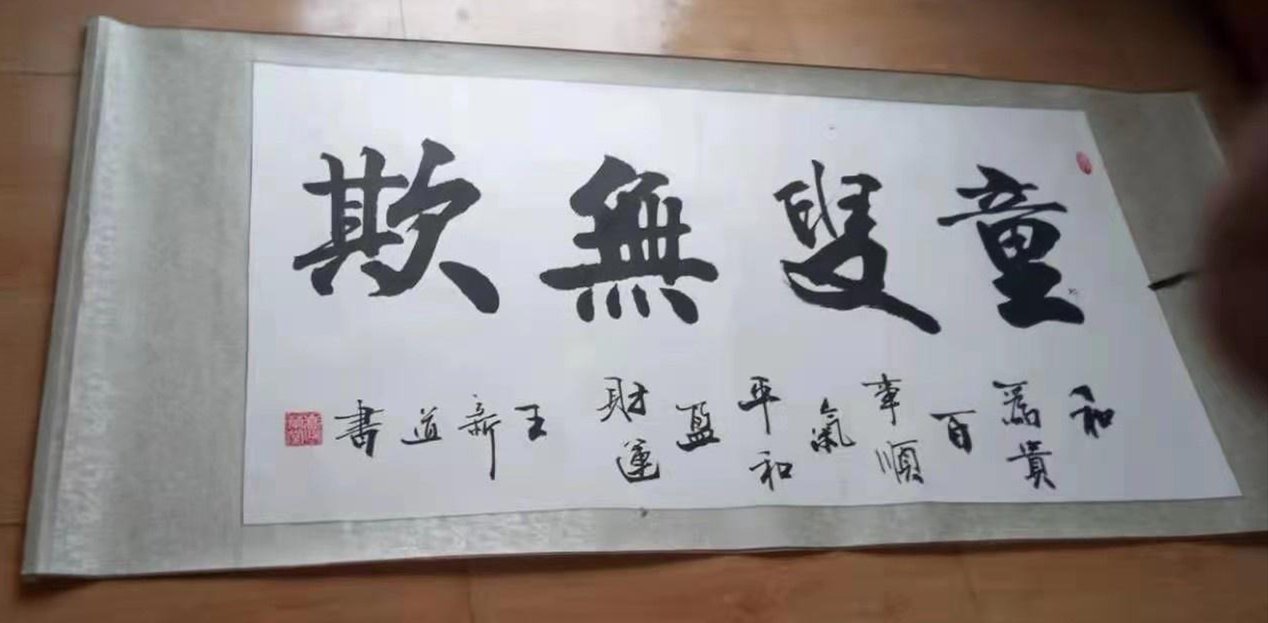 童叟無欺
和為貴百事順氣平和盈財運
王新道書